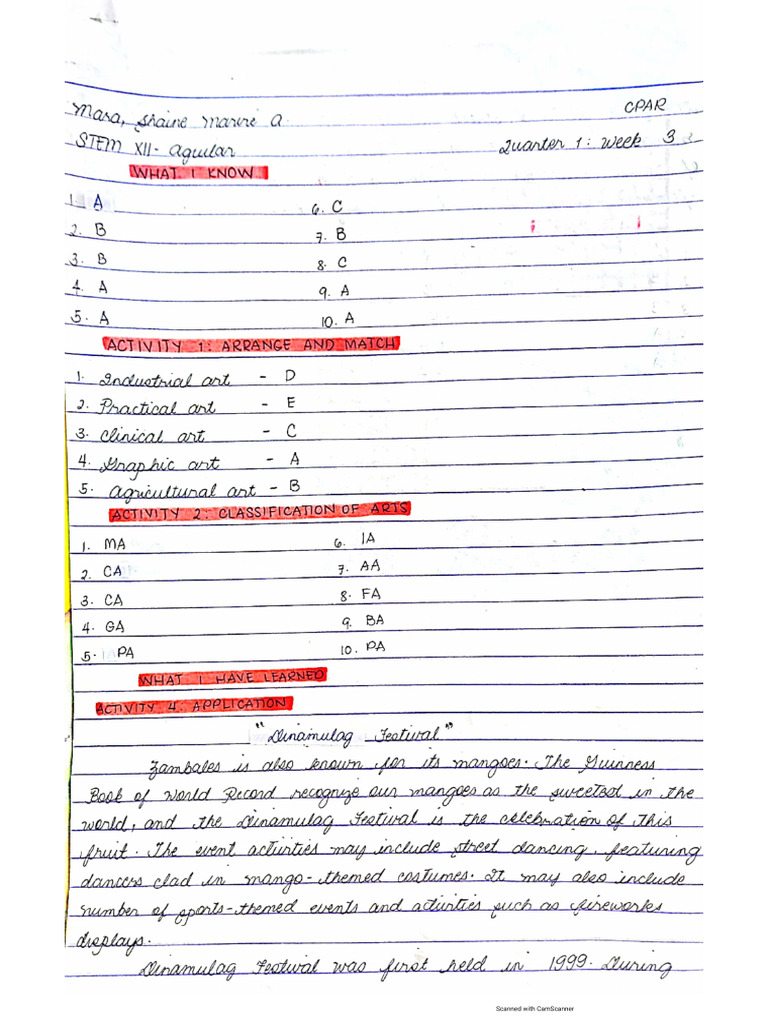 Mara, Shaine Marire A. CPAR
STEM XII- Aguilar Quarter 1: Week 3
WHAT I KNOW
1. A 6. C
2. B 7. B
3. B 8. C
4. A 9. A
5. A 10. A
ACTIVITY 1: ARRANGE AND MATCH
1. Industrial art - D
2. Practical art - E
3. Clinical art - C
4. Graphic art - A
5. Agricultural art - B
ACTIVITY 2: CLASSIFICATION OF ARTS
1. MA 6. IA
2. CA 7. AA
3. CA 8. FA
4. GA 9. BA
5. PA 10. PA
WHAT I HAVE LEARNED
ACTIVITY 4: APPLICATION
"Dinamulag Festival"
Zambales is also known for its mangoes. The Guinness
Book of World Record recognize our mangoes as the sweetest in the
world, and the Dinamulag Festival is the celebration of this
fruit. The event activities may include street dancing, featuring
dancers clad in mango-themed costumes. It may also include
number of sports-themed events and activities such as fireworks
displays.
Dinamulag Festival was first held in 1999. During
Scanned with CamScanner